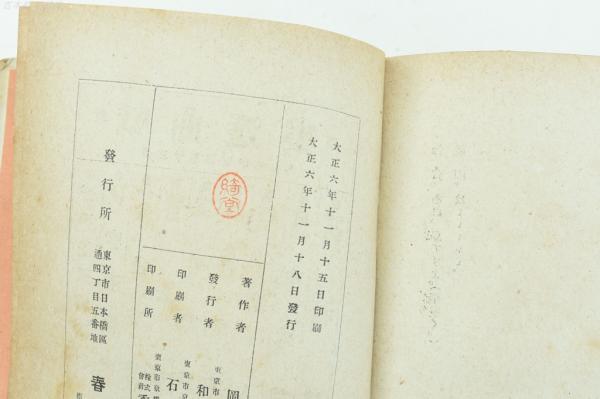 大正六年十一月十五日印刷
大正六年十一月十八日發行
綺堂
著作者
岡
發行者
東京市
和
印刷者
東京市京
石
印刷所
東京市京
株式
會社
發行所
東京市日本橋區
通四丁目五番地
春